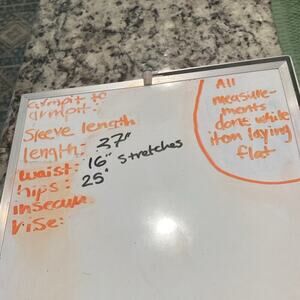 armpit to
armpit:
Sleeve length
length: 37"
waist: 16" stretches
hips: 25"
inseam
rise:
All
measure-
ments
done while
item laying
flat